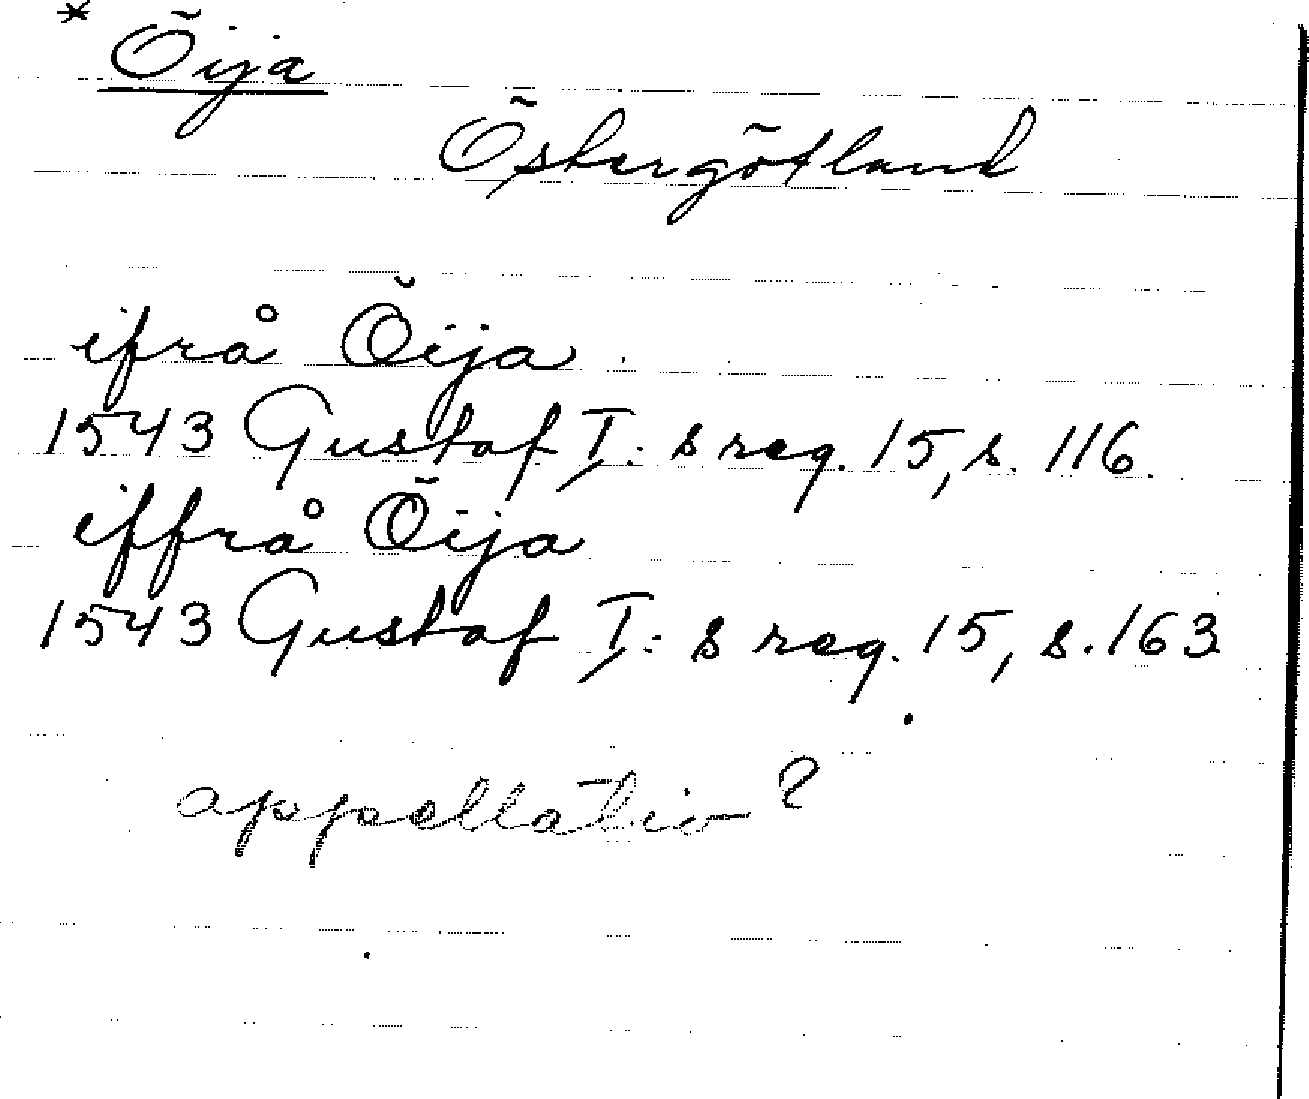 * Öija
Östergötland
ifrå Öija
1543 Gustaf I:s reg. 15, s. 116.
iffrå Öija
1543 Gustaf I:s reg. 15, s. 163
appellativ?